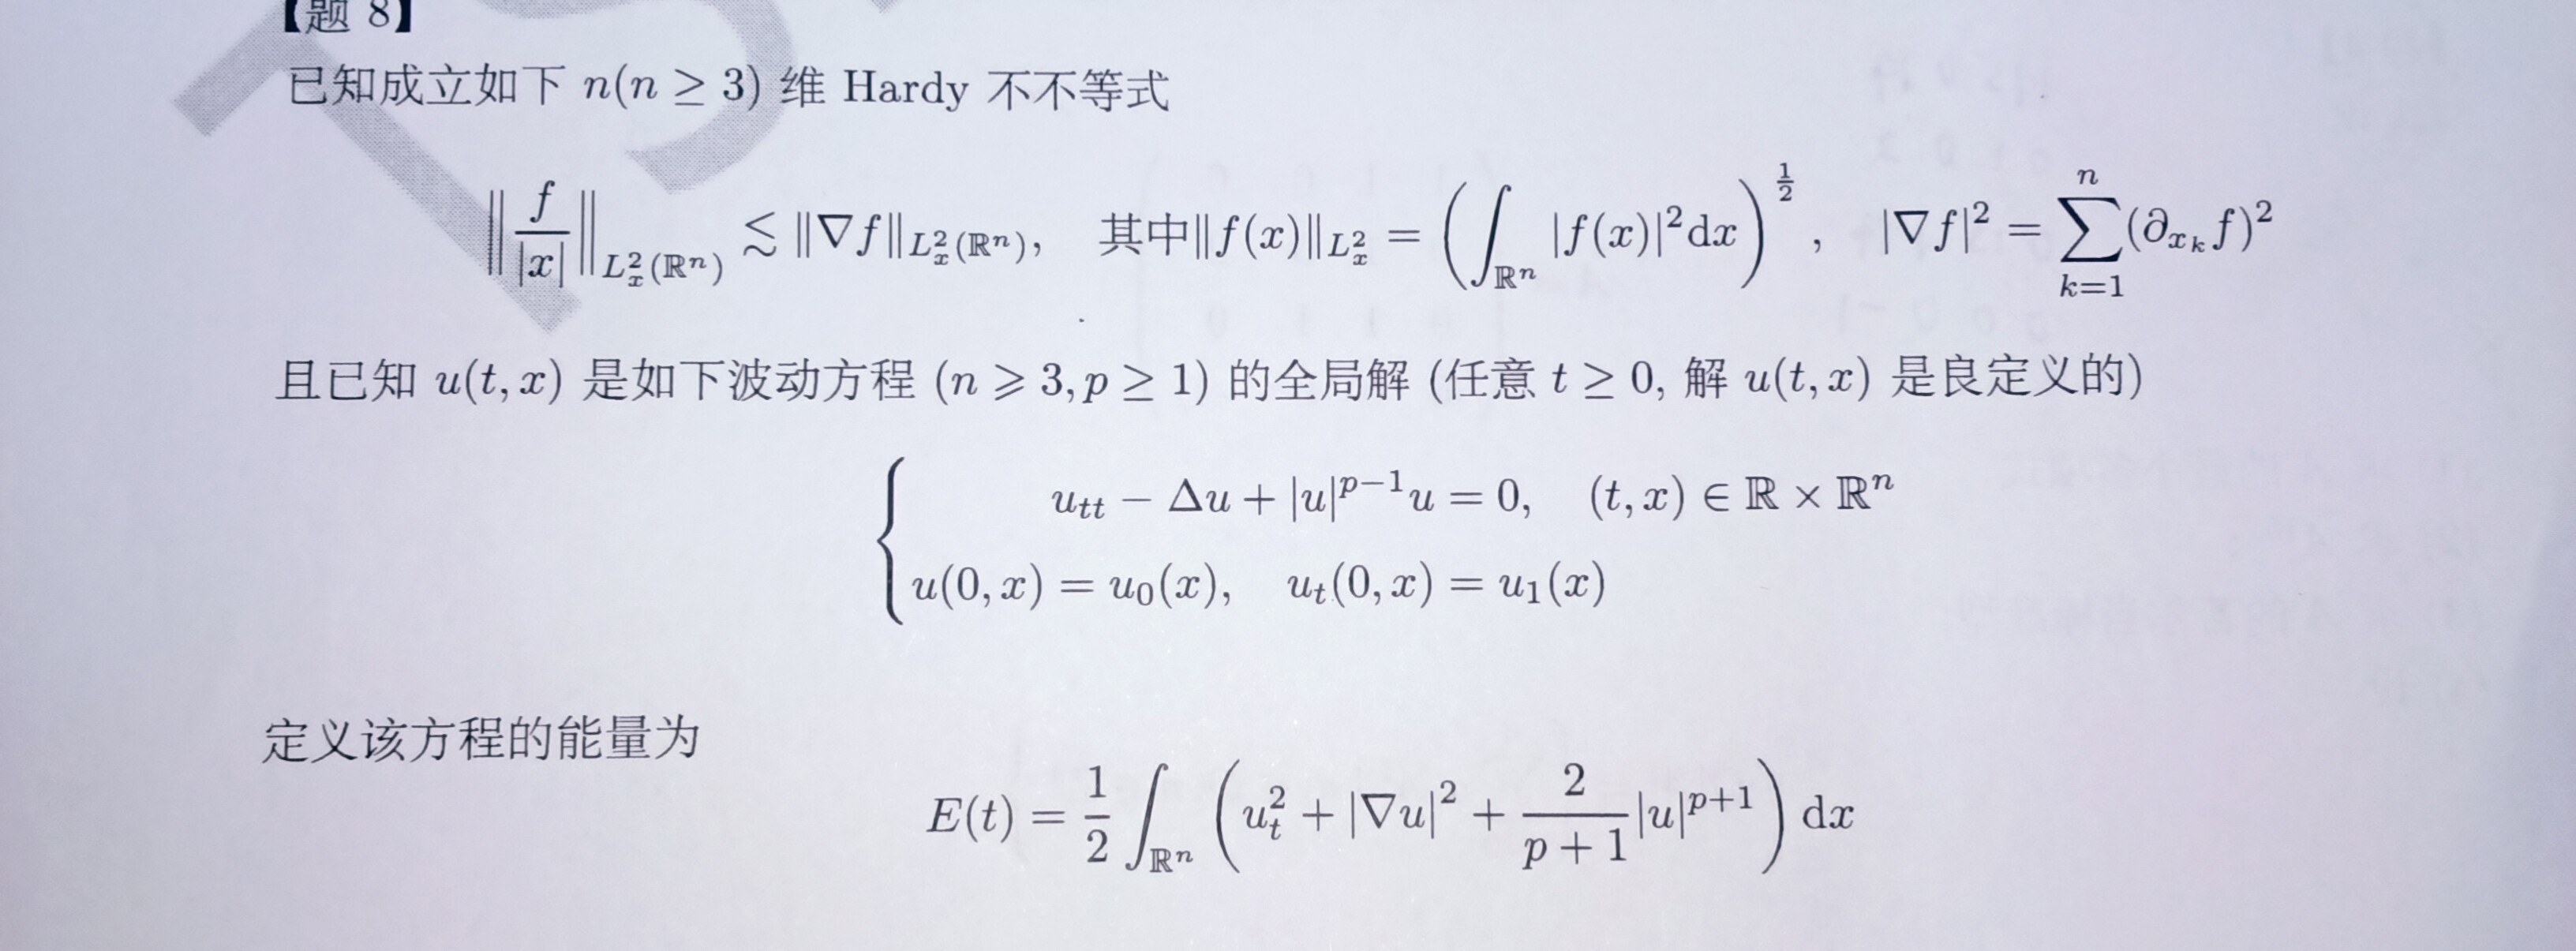 【题 8】
已知成立如下 n(n ≥ 3) 维 Hardy 不不等式
‖f/|x|‖_{L²ₓ(ℝⁿ)} ≲ ‖∇f‖_{L²ₓ(ℝⁿ)}, 其中‖f(x)‖_{L²ₓ} = (∫_{ℝⁿ} |f(x)|²dx)^{1/2}, |∇f|² = ∑_{k=1}^{n}(∂_{x_k}f)²
且已知 u(t, x) 是如下波动方程 (n ⩾ 3, p ≥ 1) 的全局解 (任意 t ≥ 0, 解 u(t, x) 是良定义的)
u_{tt} − Δu + |u|^{p−1}u = 0, (t, x) ∈ ℝ × ℝⁿ
u(0, x) = u₀(x), u_t(0, x) = u₁(x)
定义该方程的能量为
E(t) = 1/2 ∫_{ℝⁿ} (u_t² + |∇u|² + 2/(p + 1)|u|^{p+1}) dx